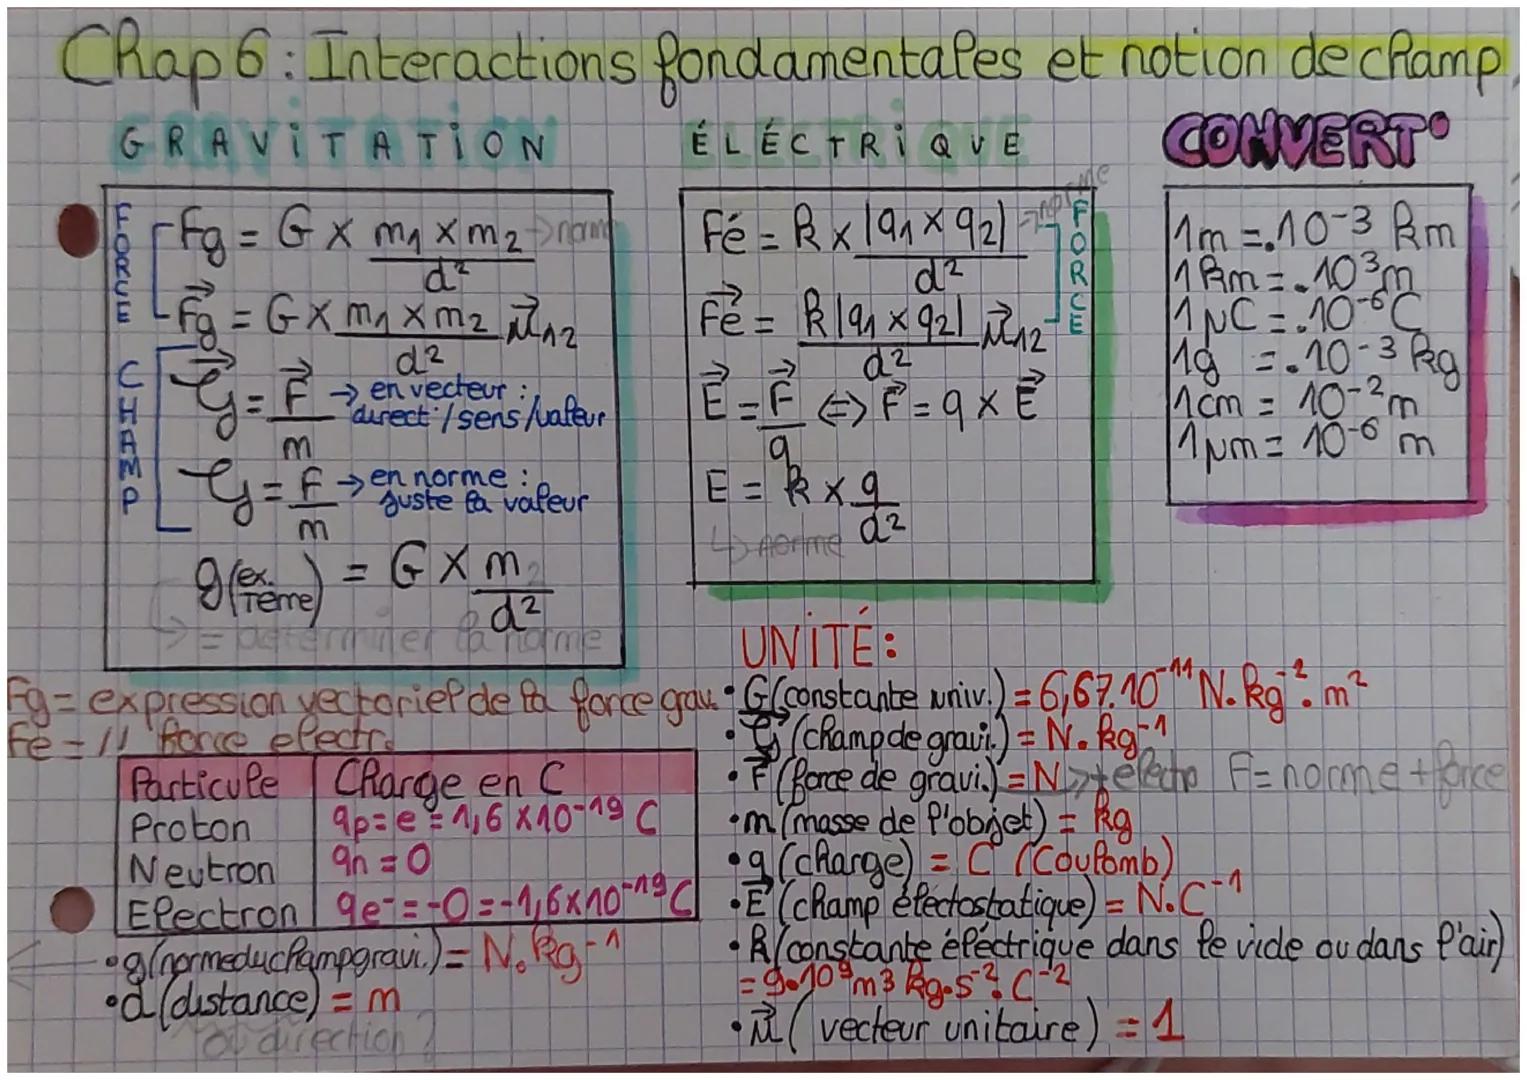 Chap 6 : Interactions fondamentales et notion de champ
GRAVITATION
FORCE
Fg = G × m1 × m2 / d² → norme
F⃗g = G × m1 × m2 / d² u⃗12
CHAMP
𝒢⃗ = F⃗ / m → en vecteur : direct° / sens / valeur
𝒢 = F / m → en norme : juste la valeur
g (ex. Terre) = G × m / d²
↳ = determiner la norme
ÉLÉCTRIQUE
FORCE
Fé = k × |q1 × q2| / d² → norme
F⃗e = k |q1 × q2| / d² u⃗12
E⃗ = F⃗ / q ⇔ F⃗ = q × E⃗
E = k × q / d²
↳ norme
CONVERT°
1m = .10⁻³ km
1km = .10³ m
1µC = .10⁻⁶ C
1g = .10⁻³ kg
1cm = 10⁻² m
1µm = 10⁻⁶ m
Fg = expression vectoriel de la force grav.
Fe = // force electr.
Particule | Charge en C
Proton | qp = e = 1,6 × 10⁻¹⁹ C
Neutron | qn = 0
Electron | qe⁻ = -0 = -1,6 × 10⁻¹⁹ C
• g (norme du champ gravi.) = N.kg⁻¹
• d (distance) = m
ou direction ?
UNITÉ :
• G (constante univ.) = 6,67.10⁻¹¹ N.kg⁻².m²
• 𝒢⃗ (champ de gravi.) = N.kg⁻¹
• F⃗ (force de gravi.) = N → + electro F = norme + force
• m (masse de l'objet) = kg
• q (charge) = C (Coulomb)
• E⃗ (champ électostatique) = N.C⁻¹
• k (constante éléctrique dans le vide ou dans l'air)
= 9.10⁹ m³ kg.s⁻².C⁻²
• u⃗ (vecteur unitaire) = 1